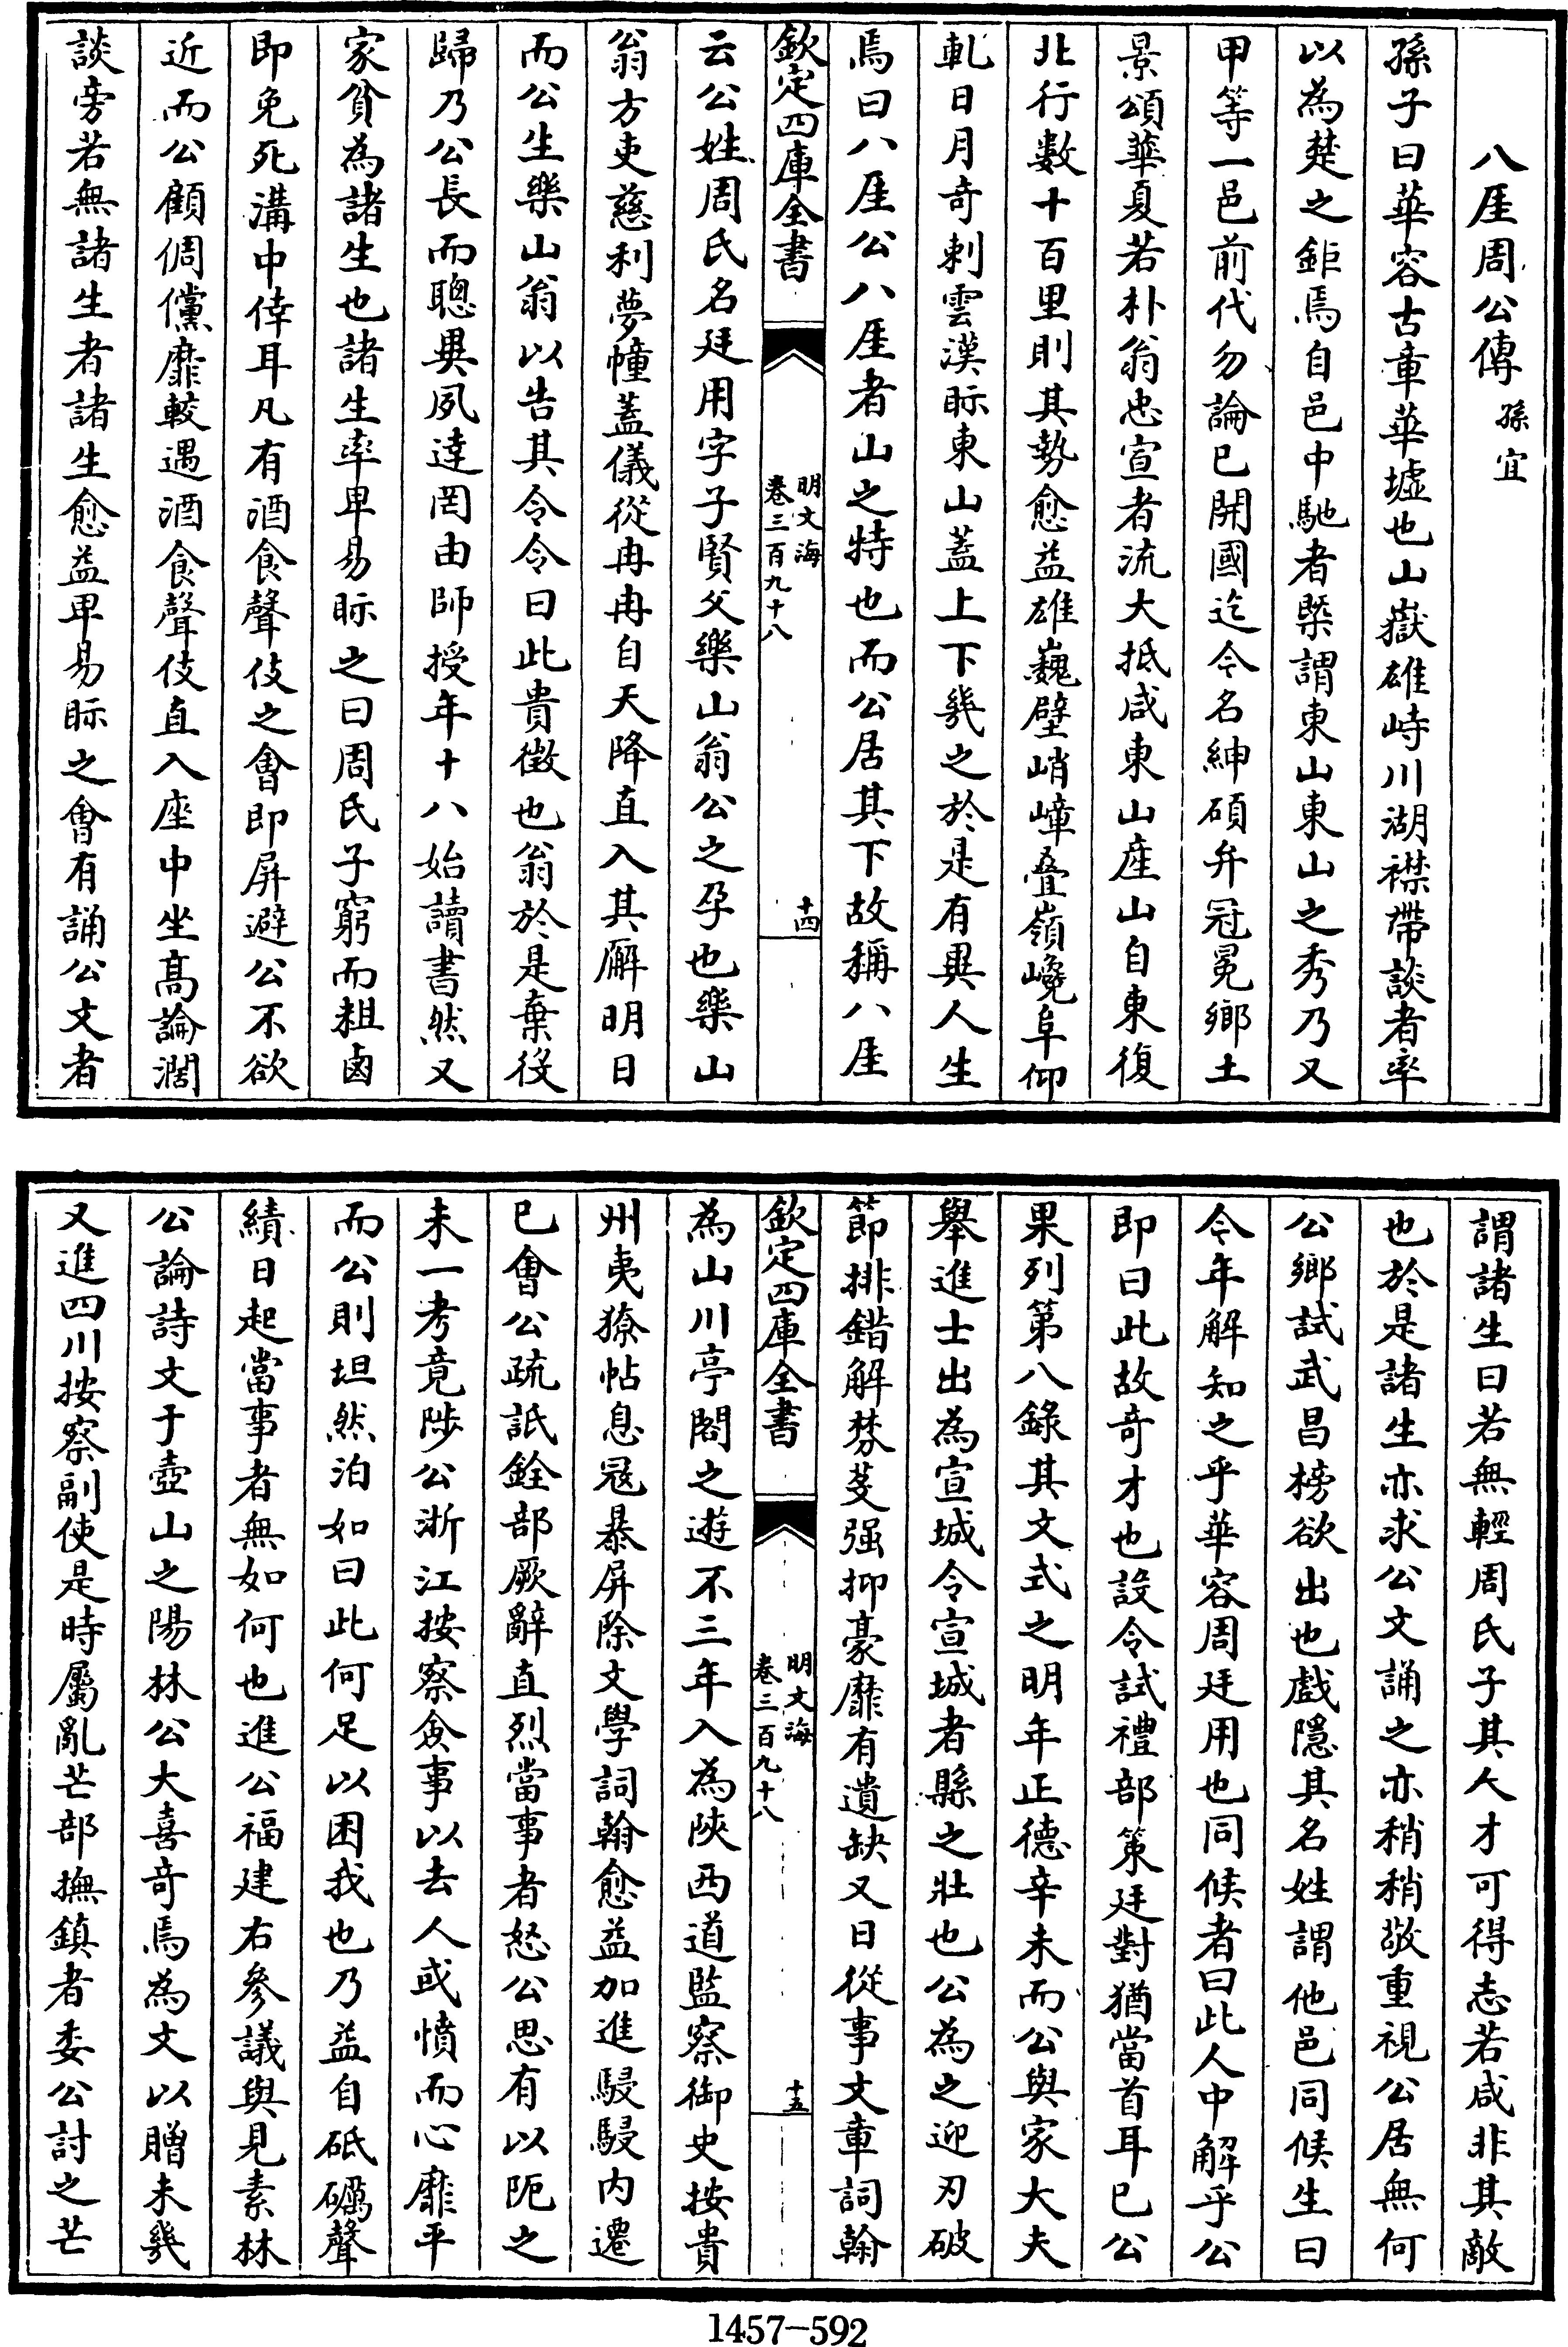 八厓周公傳　孫宜
孫子曰華容古章華墟也山嶽雄峙川湖襟帶談者率
以為楚之鉅焉自邑中馳者槩謂東山東山之秀乃又
甲等一邑前代勿論已開國迄今名紳碩弁冠冕鄉土
景頌華夏若朴翁忠宣者流大抵咸東山産山自東復
北行數十百里則其勢愈益雄巍壁峭嶂疊嶺巉阜仰
軋日月奇剌雲漢眎東山蓋上下幾之於是有異人生
焉曰八厓公八厓者山之特也而公居其下故稱八厓
欽定四庫全書
明文海
卷三百九十八
十四
云公姓周氏名廷用字子賢父樂山翁公之孕也樂山
翁方吏慈利夢幢蓋儀從冉冉自天降直入其廨明日
而公生樂山翁以告其令令曰此貴徵也翁於是棄役
歸乃公長而聰異夙達罔由師授年十八始讀書然又
家貧為諸生也諸生率卑易眎之曰周氏子窮而粗鹵
即免死溝中倖耳凡有酒食聲伎之會即屏避公不欲
近而公顧倜儻靡較遇酒食聲伎直入座中坐髙論濶
談旁若無諸生者諸生愈益卑易眎之會有誦公文者
謂諸生曰若無輕周氏子其人才可得志若咸非其敵
也於是諸生亦求公文誦之亦稍稍敬重視公居無何
公鄉試武昌榜欲出也戲隱其名姓謂他邑同候生曰
今年解知之乎華容周廷用也同候者曰此人中解乎公
即曰此故奇才也設令試禮部策廷對猶當首耳已公
果列第八錄其文式之明年正德辛未而公與家大夫
舉進士出為宣城令宣城者縣之壯也公為之迎刃破
節排錯解棼芟强抑豪靡有遺缺又日從事文章詞翰
欽定四庫全書
明文海
卷三百九十八
十五
為山川亭閣之遊不三年入為陜西道監察御史按貴
州夷獠帖息冦暴屏除文學詞翰愈益加進駸駸内遷
已會公疏詆銓部厥辭直烈當事者怒公思有以阨之
未一考竟陟公浙江按察僉事以去人或憤而心靡平
而公則坦然泊如曰此何足以困我也乃益自砥礪聲
績日起當事者無如何也進公福建右參議與見素林
公論詩文于壺山之陽林公大喜奇焉為文以贈未幾
又進四川按察副使是時屬亂芒部撫鎮者委公討之芒
1457-592